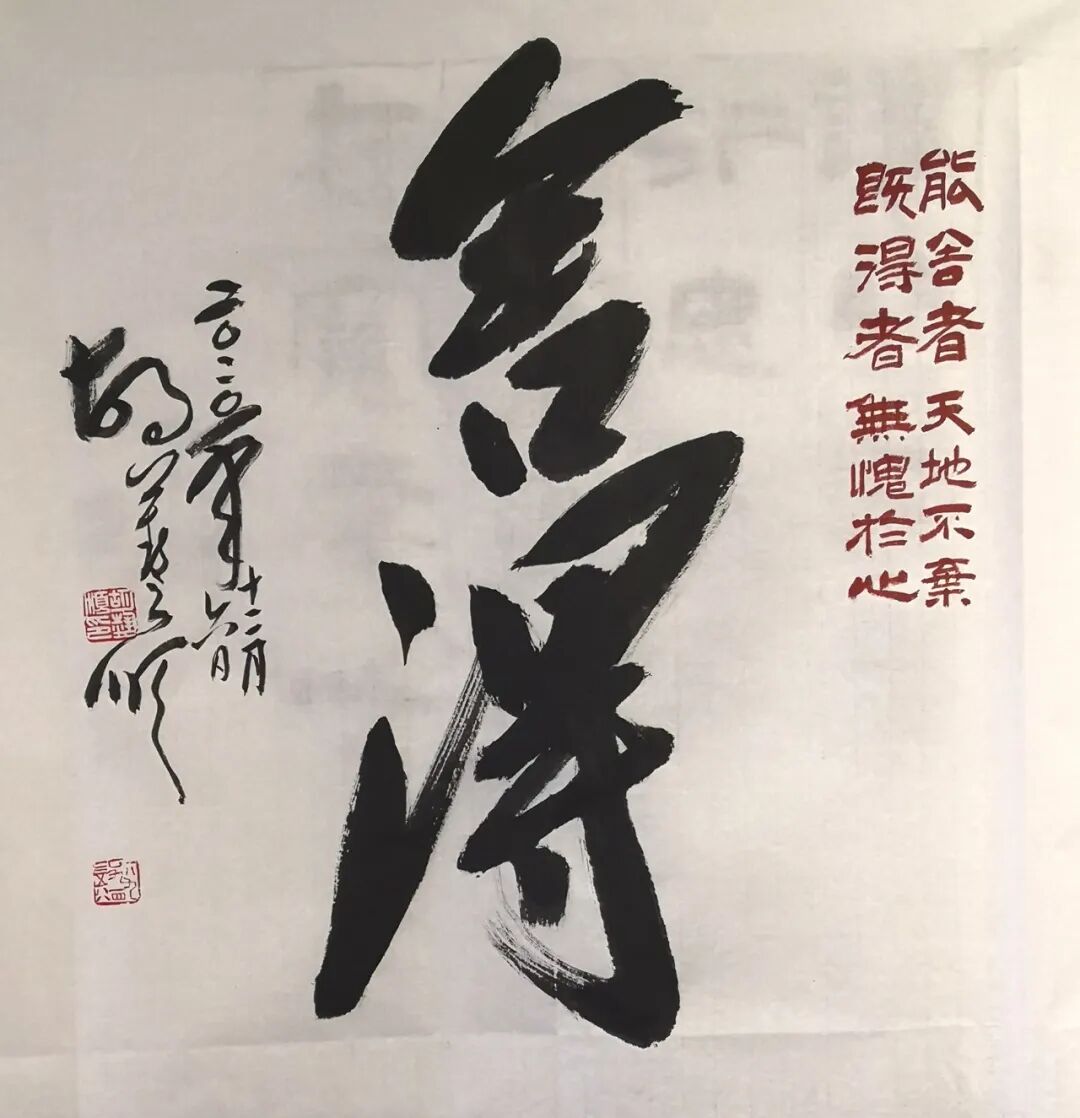 能舍者天地不棄
既得者無愧於心
舍得
二〇二〇年十二月